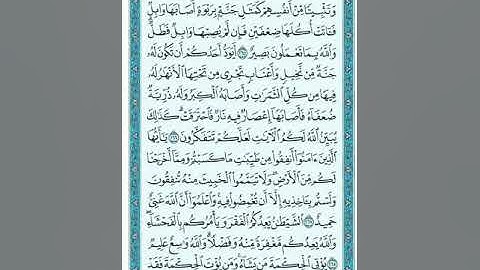 وَتَثْبِيتًا مِّنْ أَنفُسِهِمْ كَمَثَلِ جَنَّةٍۭ بِرَبْوَةٍ أَصَابَهَا وَابِلٌ
فَـَٔاتَتْ أُكُلَهَا ضِعْفَيْنِ فَإِن لَّمْ يُصِبْهَا وَابِلٌ فَطَلٌّ
وَٱللَّهُ بِمَا تَعْمَلُونَ بَصِيرٌ ٢٦٥ أَيَوَدُّ أَحَدُكُمْ أَن تَكُونَ لَهُۥ
جَنَّةٌ مِّن نَّخِيلٍ وَأَعْنَابٍ تَجْرِى مِن تَحْتِهَا ٱلْأَنْهَٰرُ لَهُۥ
فِيهَا مِن كُلِّ ٱلثَّمَرَٰتِ وَأَصَابَهُ ٱلْكِبَرُ وَلَهُۥ ذُرِّيَّةٌ
ضُعَفَآءُ فَأَصَابَهَآ إِعْصَارٌ فِيهِ نَارٌ فَٱحْتَرَقَتْ ۗ كَذَٰلِكَ
يُبَيِّنُ ٱللَّهُ لَكُمُ ٱلْـَٔايَٰتِ لَعَلَّكُمْ تَتَفَكَّرُونَ ٢٦٦ يَٰٓأَيُّهَا
ٱلَّذِينَ ءَامَنُوٓا۟ أَنفِقُوا۟ مِن طَيِّبَٰتِ مَا كَسَبْتُمْ وَمِمَّآ أَخْرَجْنَا
لَكُم مِّنَ ٱلْأَرْضِ ۖ وَلَا تَيَمَّمُوا۟ ٱلْخَبِيثَ مِنْهُ تُنفِقُونَ
وَلَسْتُم بِـَٔاخِذِيهِ إِلَّآ أَن تُغْمِضُوا۟ فِيهِ ۚ وَٱعْلَمُوٓا۟ أَنَّ ٱللَّهَ غَنِىٌّ
حَمِيدٌ ٢٦٧ ٱلشَّيْطَٰنُ يَعِدُكُمُ ٱلْفَقْرَ وَيَأْمُرُكُم بِٱلْفَحْشَآءِ ۖ
وَٱللَّهُ يَعِدُكُم مَّغْفِرَةً مِّنْهُ وَفَضْلًا ۗ وَٱللَّهُ وَٰسِعٌ عَلِيمٌ ٢٦٨
يُؤْتِى ٱلْحِكْمَةَ مَن يَشَآءُ ۚ وَمَن يُؤْتَ ٱلْحِكْمَةَ فَقَدْ